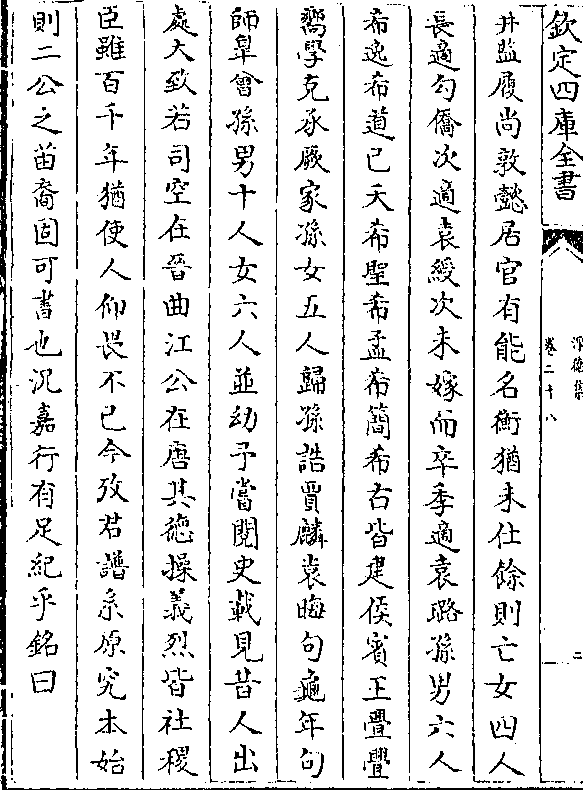 欽定四庫全書
淨德集
卷二十八
二
井監履尚敦懿居官有能名衡猶未仕餘則亡女四人
長適勾僑次適袁綬次未嫁而卒季適袁璐孫男六人
希逸希道已夭希聖希孟希簡希右皆建侯賓王亹亹
嚮學克承厥家孫女五人歸孫誥賈麟袁晦句龜年句
師臯曾孫男十人女六人並幼予嘗閱史載見昔人出
處大致若司空在晉曲江公在唐其德操義烈皆社稷
臣雖百千年猶使人仰畏不已今攷君譜系原究本始
則二公之苗裔固可書也況嘉行有足紀乎銘曰